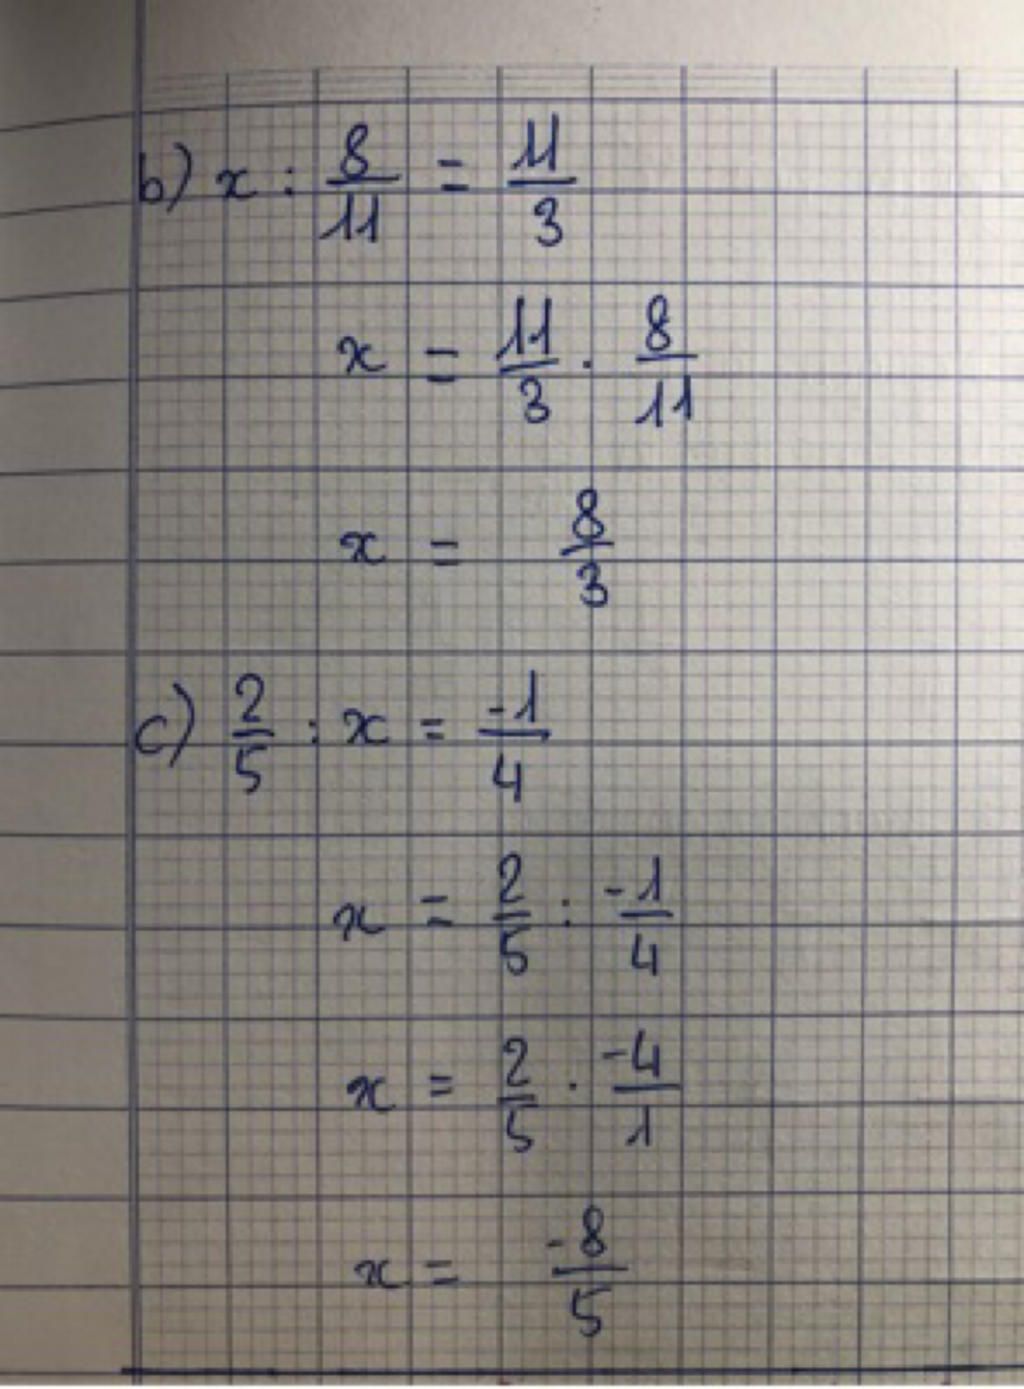 b) x : 8/11 = 11/3
x = 11/3 . 8/11
x = 8/3
c) 2/5 : x = -1/4
x = 2/5 : -1/4
x = 2/5 . -4/1
x = -8/5